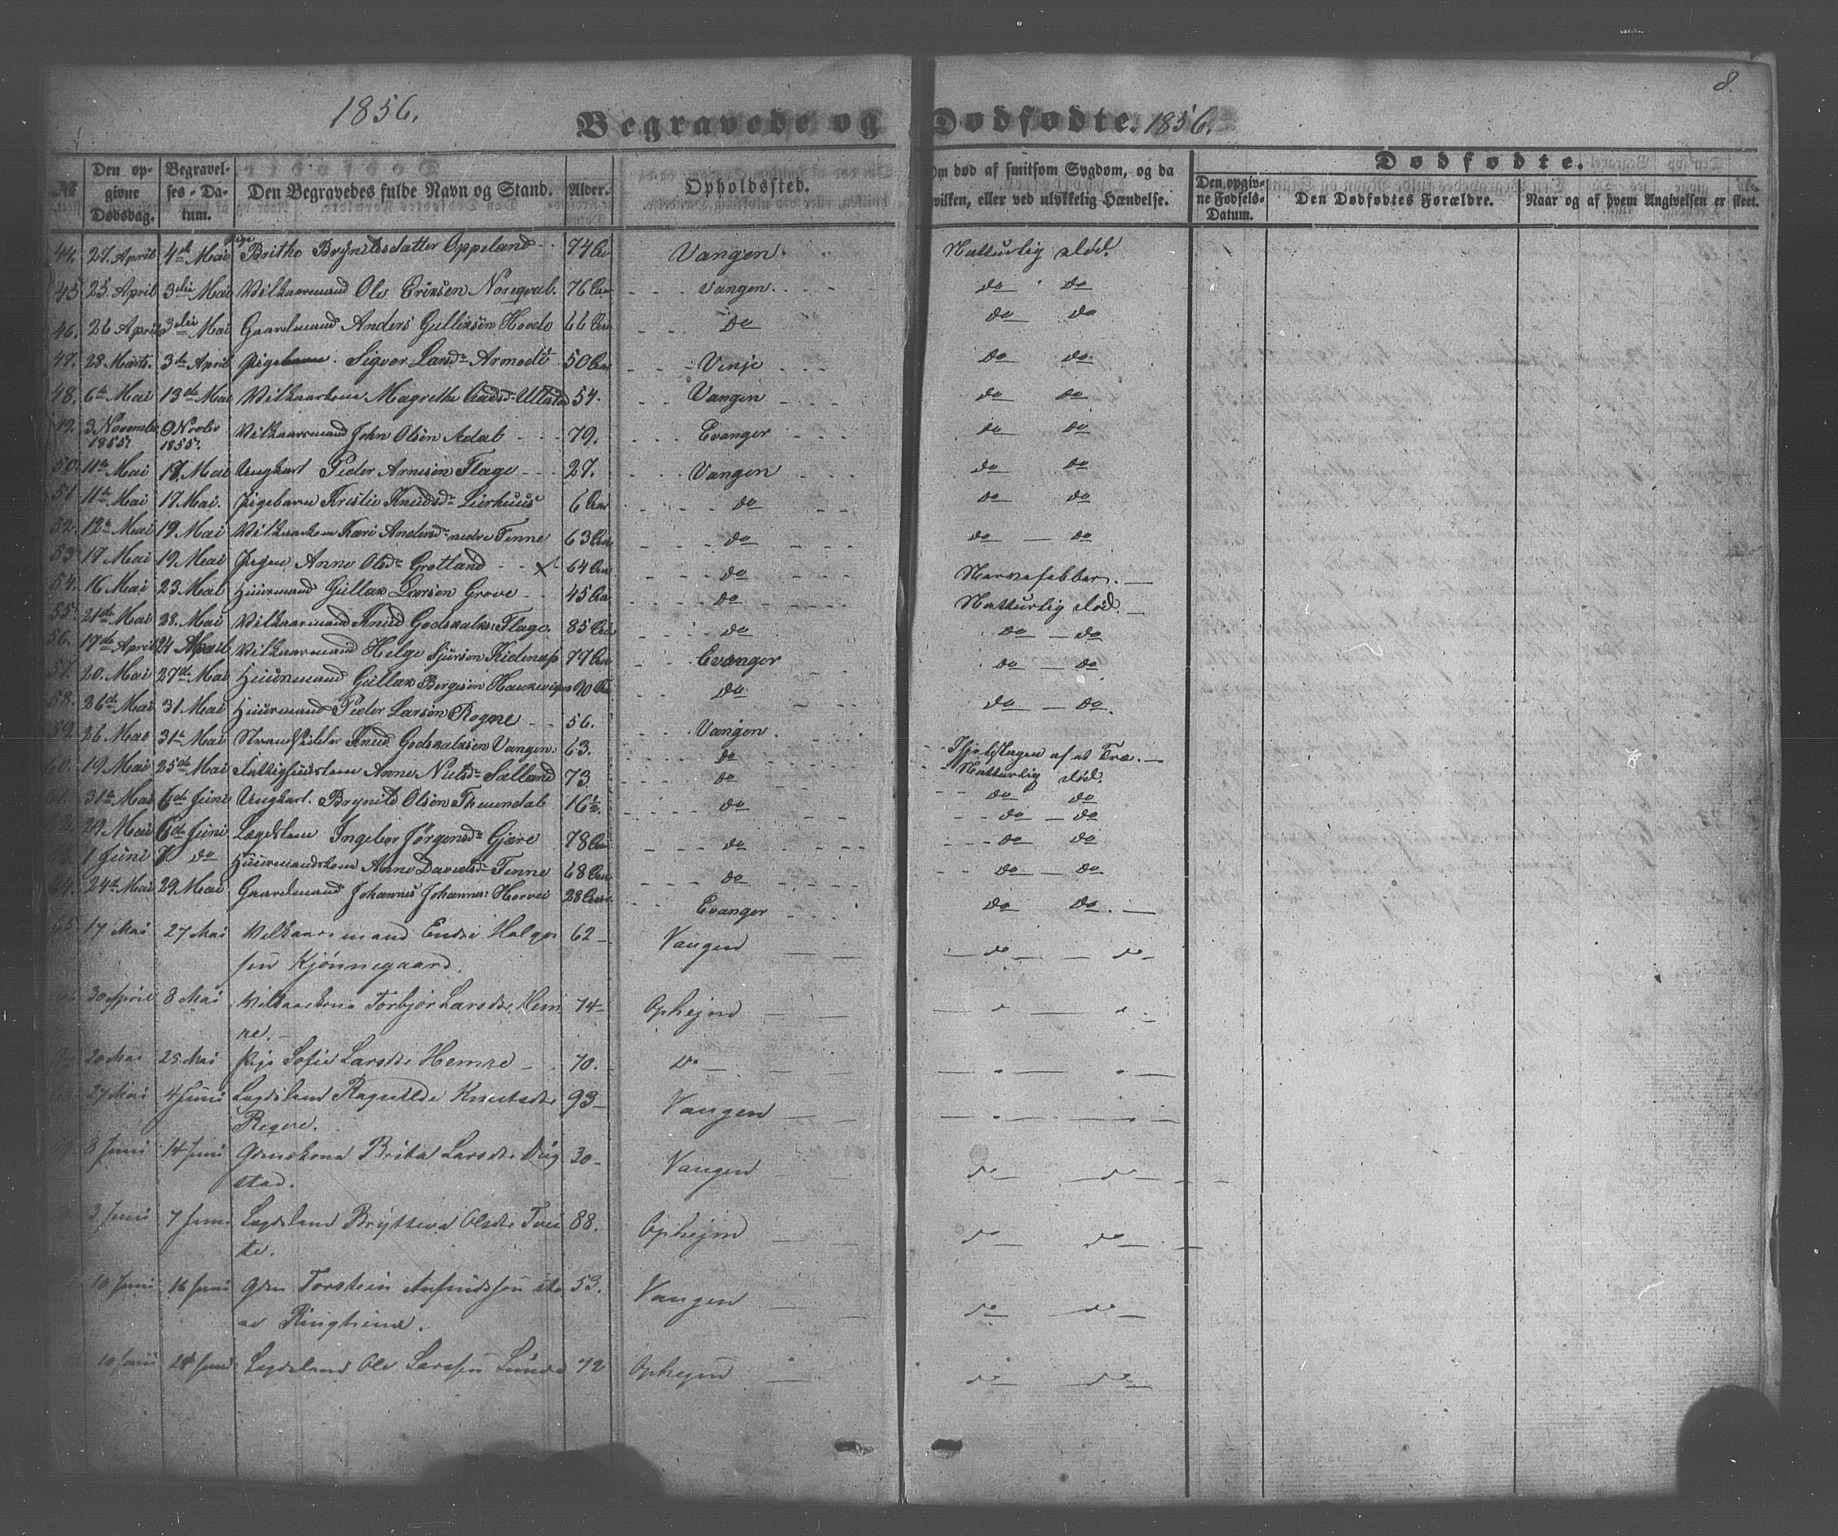 1856.
8.
Begravede og Dødfødte. 1856.
No. Den opgivne Dødsdag. Begravelses-Datum. Den Begravedes fulde Navn og Stand. Alder. Opholdssted. Om død af smitsom Sygdom, og da hvilken, eller ved ulykkelig Hændelse. Dødfødte. Den opgivne Fødsels-Datum. Den Dødfødtes Forældre. Naar og af hvem Angivelsen er skeet.
44. 27. April 4de Mai Pige Britho Brynildsdatter Oppeland 74 Aar Vangen Naturlig død.
45. 25. April 3die Mai Vilkaarmand Ole Eriksen Noreqval. 76 Aar Vangen. do do
46. 26 April 3die Mai Gaardmand Anders Gulliksen Hovdo 66 Aar do do do
47. 28 Marts. 3de April Pige Sigvor Larsd: Armodt 50 Aar Vinje do do.
48. 6te Mai 13de Mai Vilkaarkone Magrethe 54. Vangen do do
49. 3 Novembr 1855. 9 Novbr 1855. Vilkaarsmand John Olsen Adal 79. Evanger do do
50. 11te Mai 18. Mai Ungkarl Peder Arnesen Flage 27. Vangen do do
51 11te Mai 17 Mai. Pigebarn Kristie Knudsd: Leirhuus 6 Aar do do do
52. 12te Mai 19 Mai Vilkaarkone Kari Andersd: nedre Finne 63 Aar do do do
53 17 Mai 19 Mai Pigen Anna Olsd: Grotland X 64 Aar do Nervefebber.
54. 16 Mai 23 Mai Huusmand Gullak Larsen Grove 45 Aar do Naturlig død.
55. 21de Mai 28. Mai Vilkaarmand Knud Godskalks: Flage. 85 Aar do do do
56. 17de April 24 April Vilkaarmand Helge Sjursen 77 Aar Evanger do do
57. 20. Mai 27de Mai Huusmand Gullak Børgesen 90 Aar do
58. 26de Mai 31. Mai Huusmand Peder Larsen Rogne 56. Vangen. do do.
59. 26 Mai 31te Mai Knud Godskalksen Vangen: 63. do Ihjelslagen af et Træ.
60. 19 Mai 25de Mai Fattiglemskone Anne Nielsd: Sælland 73 do Naturlig død.
61. 31te Mai 6de Juni Ungkarl. Brynild Olsen 16½ do do do
62. 29 Mai 6de Juni Lægdslem Ingebor Jørgensd: Gjøre 78 Aar do do do
63. 1 Juni 7 do Huusmandskone Anne Davidsd: Finne 68 Aar do do do
64. 24de Mai 29 Mai Gaardmand Johannes Johannes: Horvei 28 Aar. Evanger do do.
65. 17 Mai 27 Mai Vilkaarsmand Endre Helge- 62 Vangen do do
sen Kjønnegaard.
30 April 8 Mai Vilkaarkone Torbjør Larsdtr Hem- 74 Opheim
re.
20 Mai 25 Mai Pige Sofie Larsdtr Hemre 70. Do
68 27 Mai 4 Juni Lægdslem Ragnilde Knutsdtr 93 Vangen
Rogne.
8 Juni 14 Juni Gdmskona Brita Larsdtr Dug- 30 Vangen do do
stad.
3 Juni 7 Juni Lægdslem Brytteva Olsdtr Tvei- 88. Opheim do do
te.
10 Juni 16 Juni Gdm Torstein 53. Vangen do do
Ringheim.
10 Juni 24 Juni Lægdslem Ole Larssen 72 Opheim do do